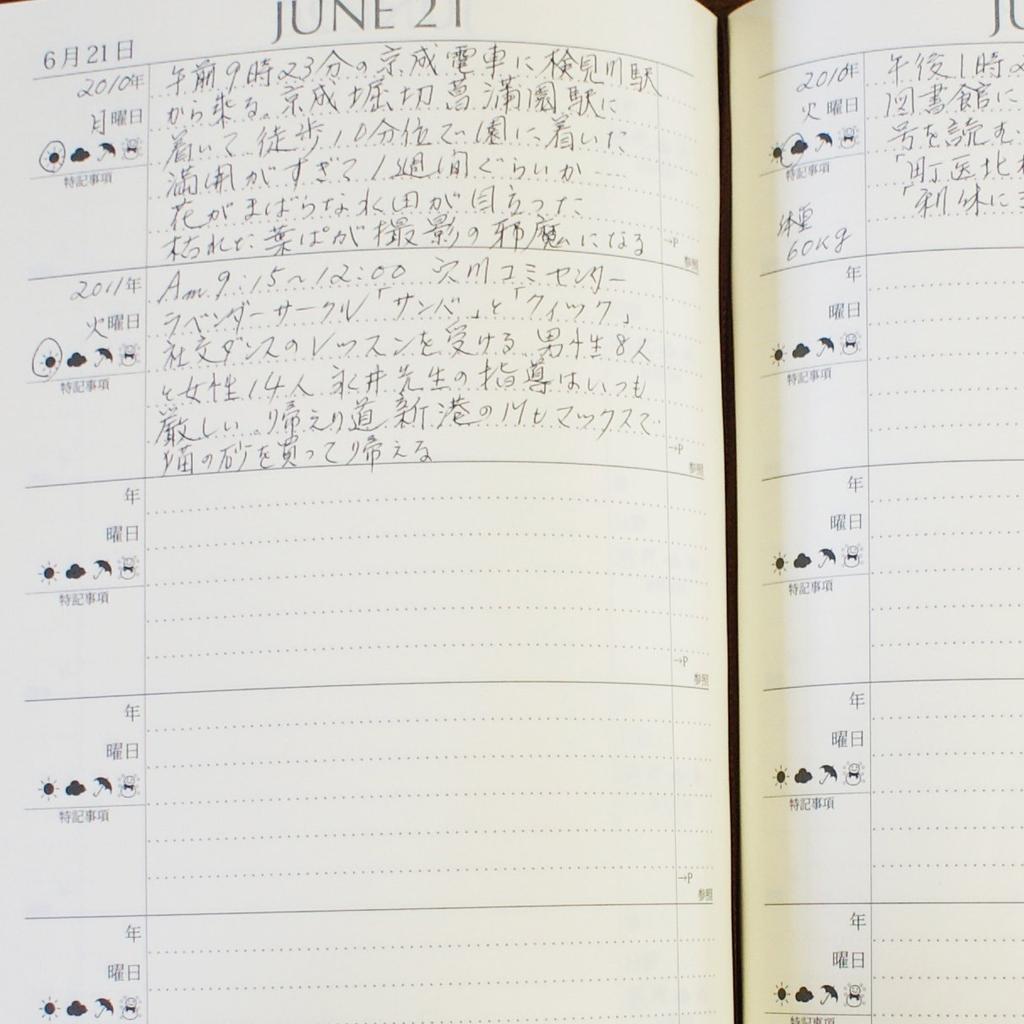 JUNE 21
6月21日
2010年
月曜日
特記事項
午前9時23分の京成電車に検見川駅
から乗る。京成堀切菖蒲園駅に
着いて徒歩10分位で園に着いた
満開がすぎて1週間ぐらいか
花がまばらな水田が目立った
枯れた葉ぱが撮影の邪魔になる
→P
参照
2011年
火曜日
特記事項
Am 9:15~12:00 穴川コミセンター
ラベンダーサークル「サンバ」と「クイック」
社交ダンスのレッスンを受ける 男性8人
と女性14人 永井先生の指導はいつも
厳しい。帰えり道 新港のケーヨーマックスで
猫の砂を買って帰える
→P
参照
年
曜日
特記事項
→P
参照
年
曜日
特記事項
→P
参照
年
曜日
JU
2010年
火曜日
特記事項
体重
60Kg
午後1時2
図書館に
号を読む
「町医北村
「利休に
年
曜日
特記事項
年
曜日
特記事項
年
曜日
特記事項
年
曜日
特記事項